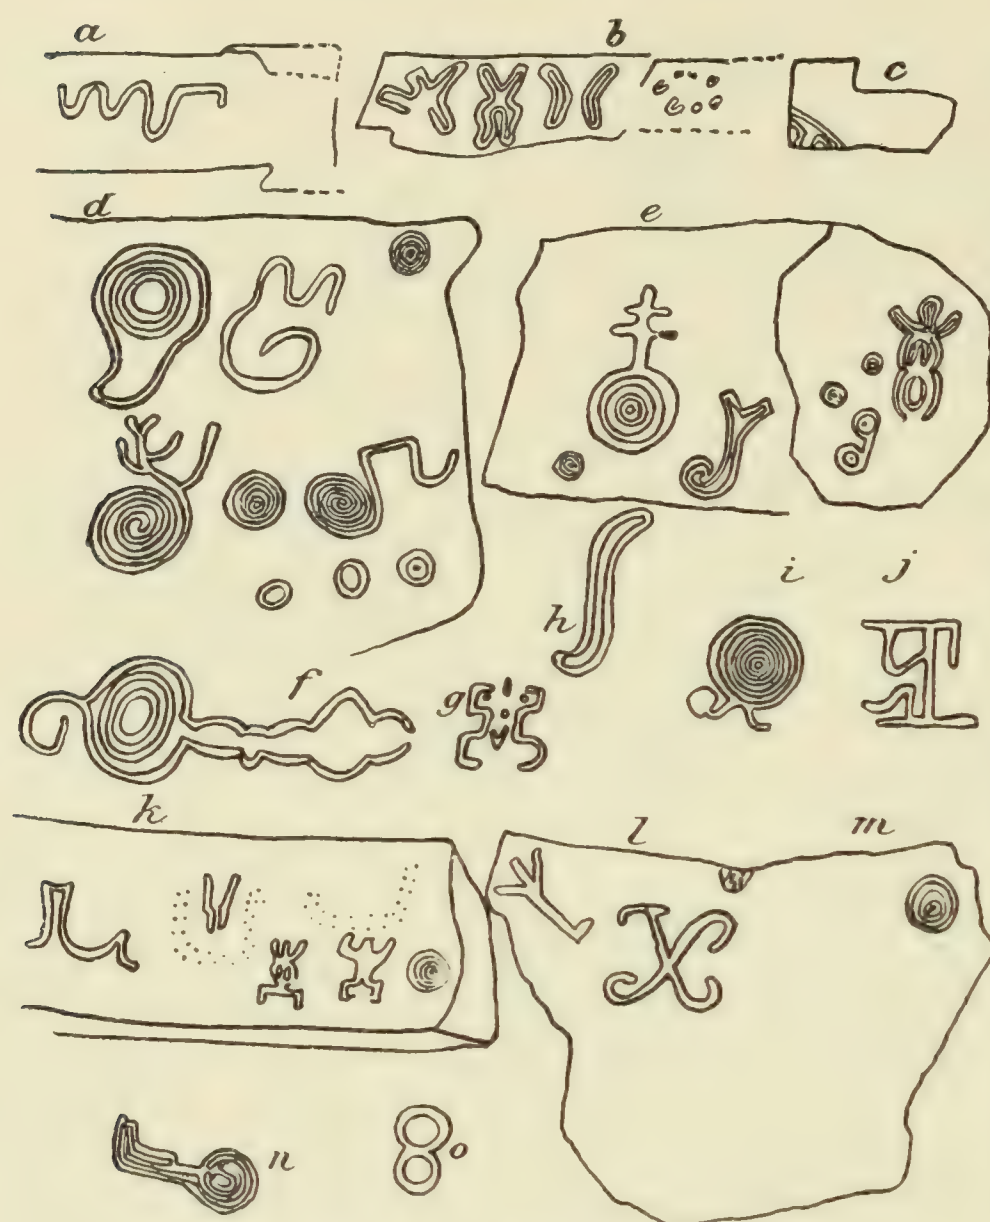 a b c
d e
h i j
f g
k l m
n o